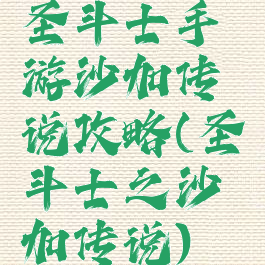 圣斗士手
游沙加传
说攻略(圣
斗士之沙
加传说)